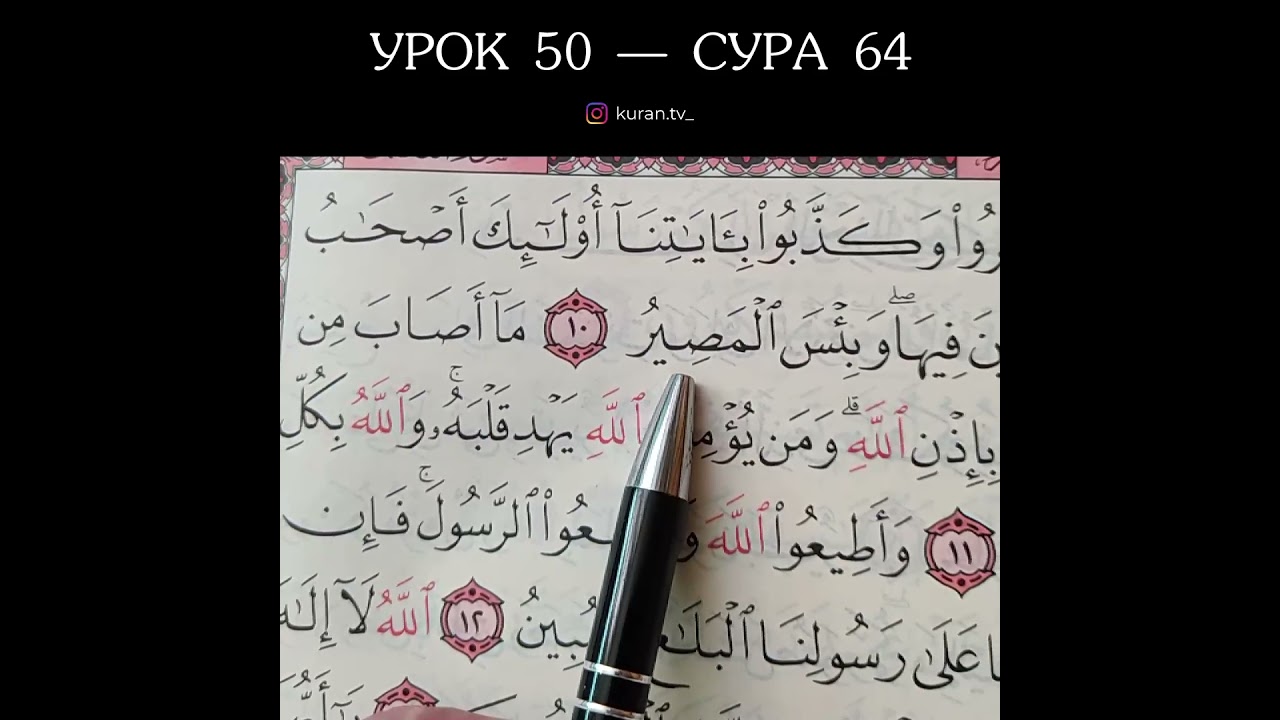 УРОК 50 — СУРА 64
kuran.tv_
وَكَذَّبُوا۟ بِـَٔايَـٰتِنَآ أُو۟لَـٰٓئِكَ أَصۡحَـٰبُ
فِيهَاۖ وَبِئۡسَ ٱلۡمَصِيرُ ١٠ مَآ أَصَابَ مِن
بِإِذۡنِ ٱللَّهِۗ وَمَن ٱللَّهِ يَهۡدِ قَلۡبَهُۥۚ وَٱللَّهُ بِكُلِّ
١١ وَأَطِيعُوا۟ ٱللَّهَ ٱلرَّسُولَۚ فَإِن
عَلَىٰ رَسُولِنَا ١٢ ٱللَّهُ لَآ إِلَـٰهَ